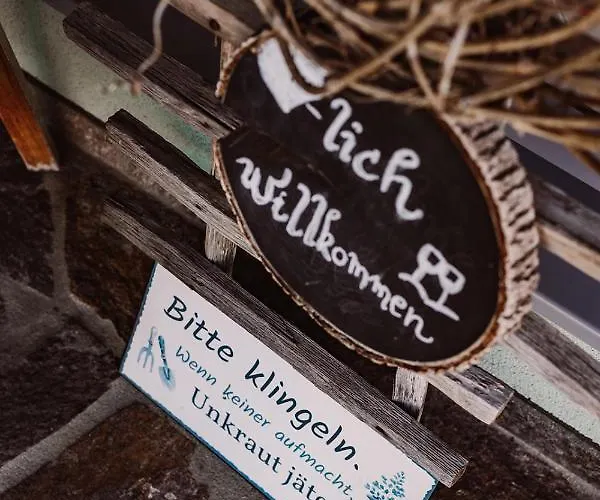 -lich
willkommen
Bitte klingeln.
Wenn keiner aufmacht,
Unkraut